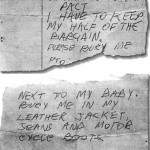 PACT
I HAVE TO KEEP
MY HALF OF THE
BARGAIN.
PLEASE BURY ME
PTO
NEXT TO MY BABY.
BURY ME IN MY
LEATHER JACKET
JEANS AND MOTOR
CYCLE BOOTS